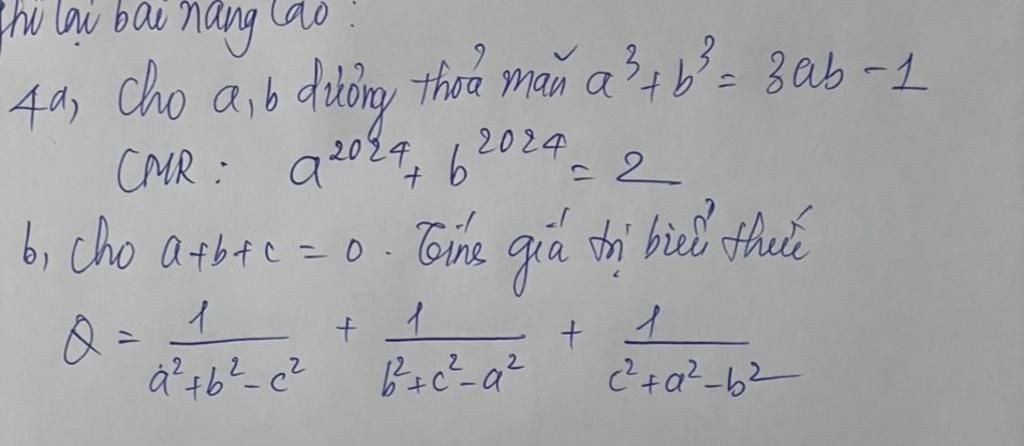 thi lại bài nâng cao :
4a, Cho a,b dương thoả mãn a³ + b³ = 3ab - 1
CMR : a²⁰²⁴ + b²⁰²⁴ = 2
b, Cho a+b+c = 0 . Tính giá trị biểu thức
Q = 1/(a²+b²-c²) + 1/(b²+c²-a²) + 1/(c²+a²-b²)